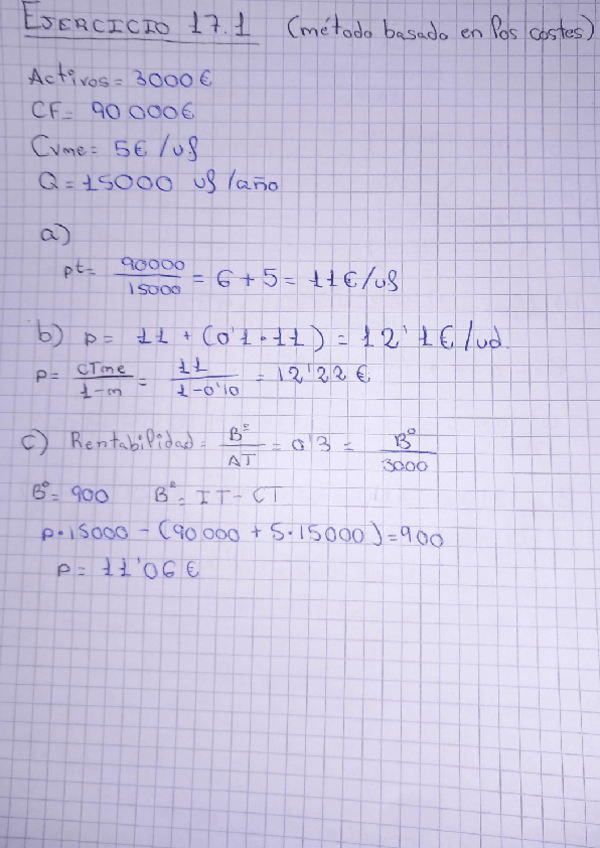 EJERCICIO 17.1 (método basado en los costes)
Activos = 3000€
CF = 90 000€
Cvme = 5€ /uf
Q = 15000 uf /año
a)
pt = 90000/15000 = 6 + 5 = 11€/uf
b) p = 11 + (0'1 · 11) = 12'1€/ud.
p = CTme/1-m = 11/1-0'10 = 12'22 €
c) Rentabilidad = Bº/AT = 0'3 = Bº/3000
Bº = 900 Bº = IT - CT
p·15000 - (90000 + 5·15000) = 900
p = 11'06 €